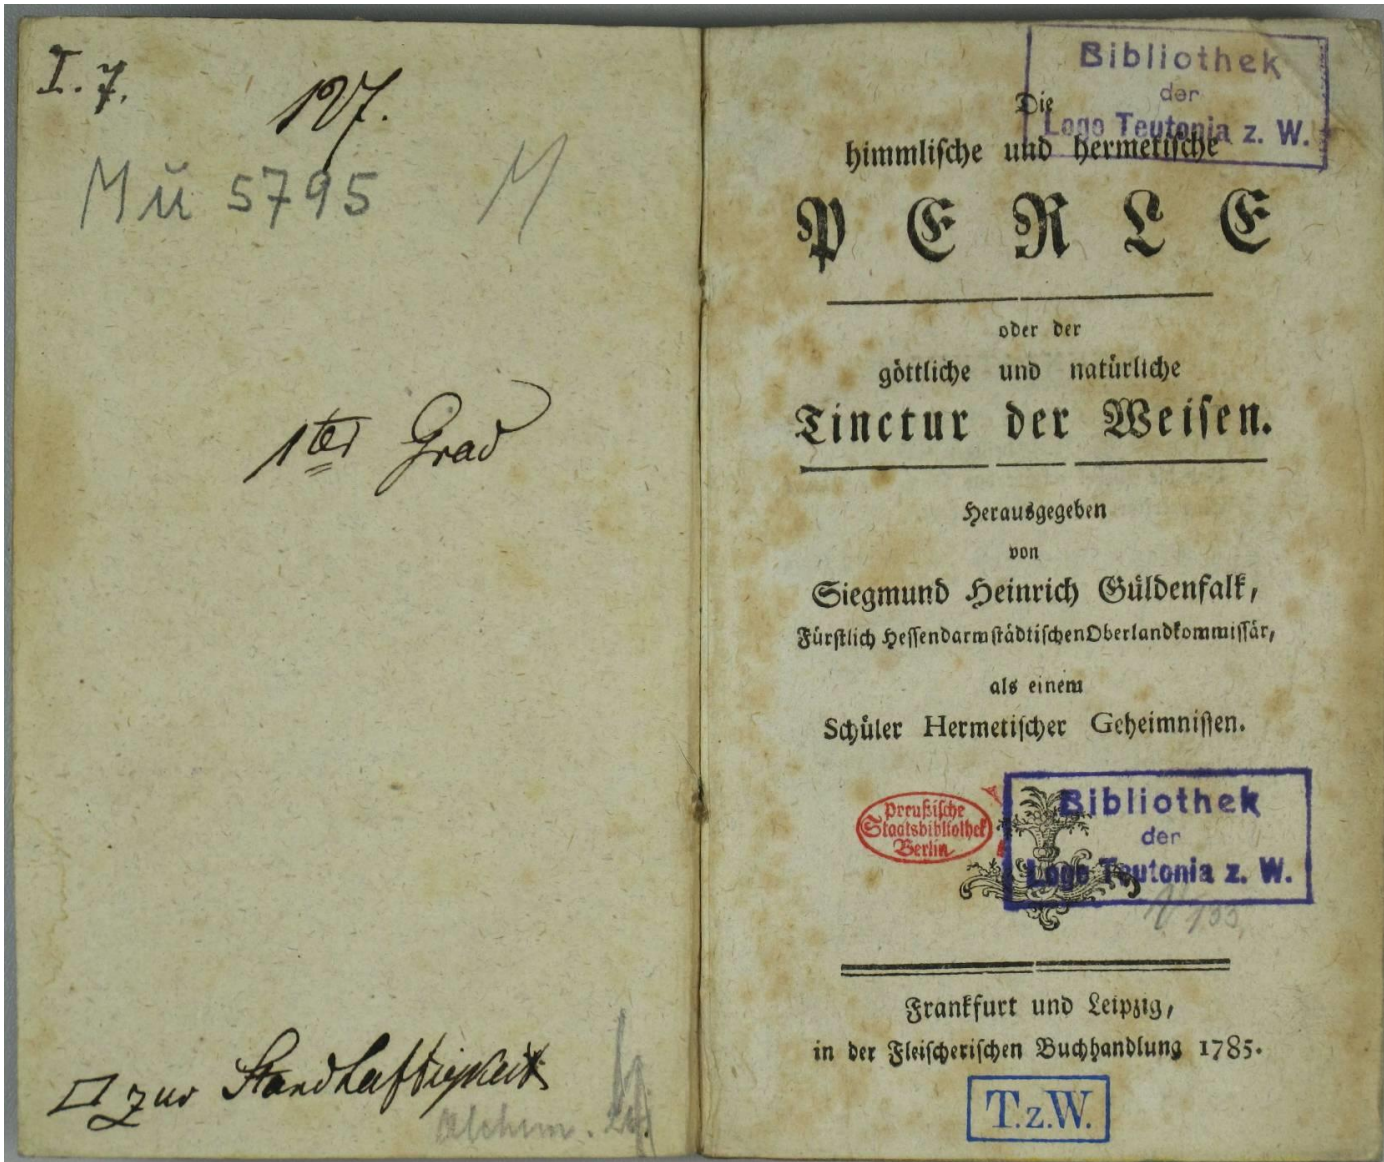 I. 7.
127.
Mü 5795 M
1ter Grad
zur Standhaftigkeit
Alchim.
Bibliothek
der
Loge Teutonia z. W.
Die
himmlische und hermetische
PERLE
oder der
göttliche und natürliche
Tinctur der Weisen.
Herausgegeben
von
Siegmund Heinrich Güldenfalk,
Fürstlich Hessendarmstädtischen Oberlandkommissär,
als einem
Schüler Hermetischer Geheimnissen.
Preußische
Staatsbibliothek
Berlin
Bibliothek
der
Loge Teutonia z. W.
V 133,
Frankfurt und Leipzig,
in der Fleischerischen Buchhandlung 1785.
T.z.W.